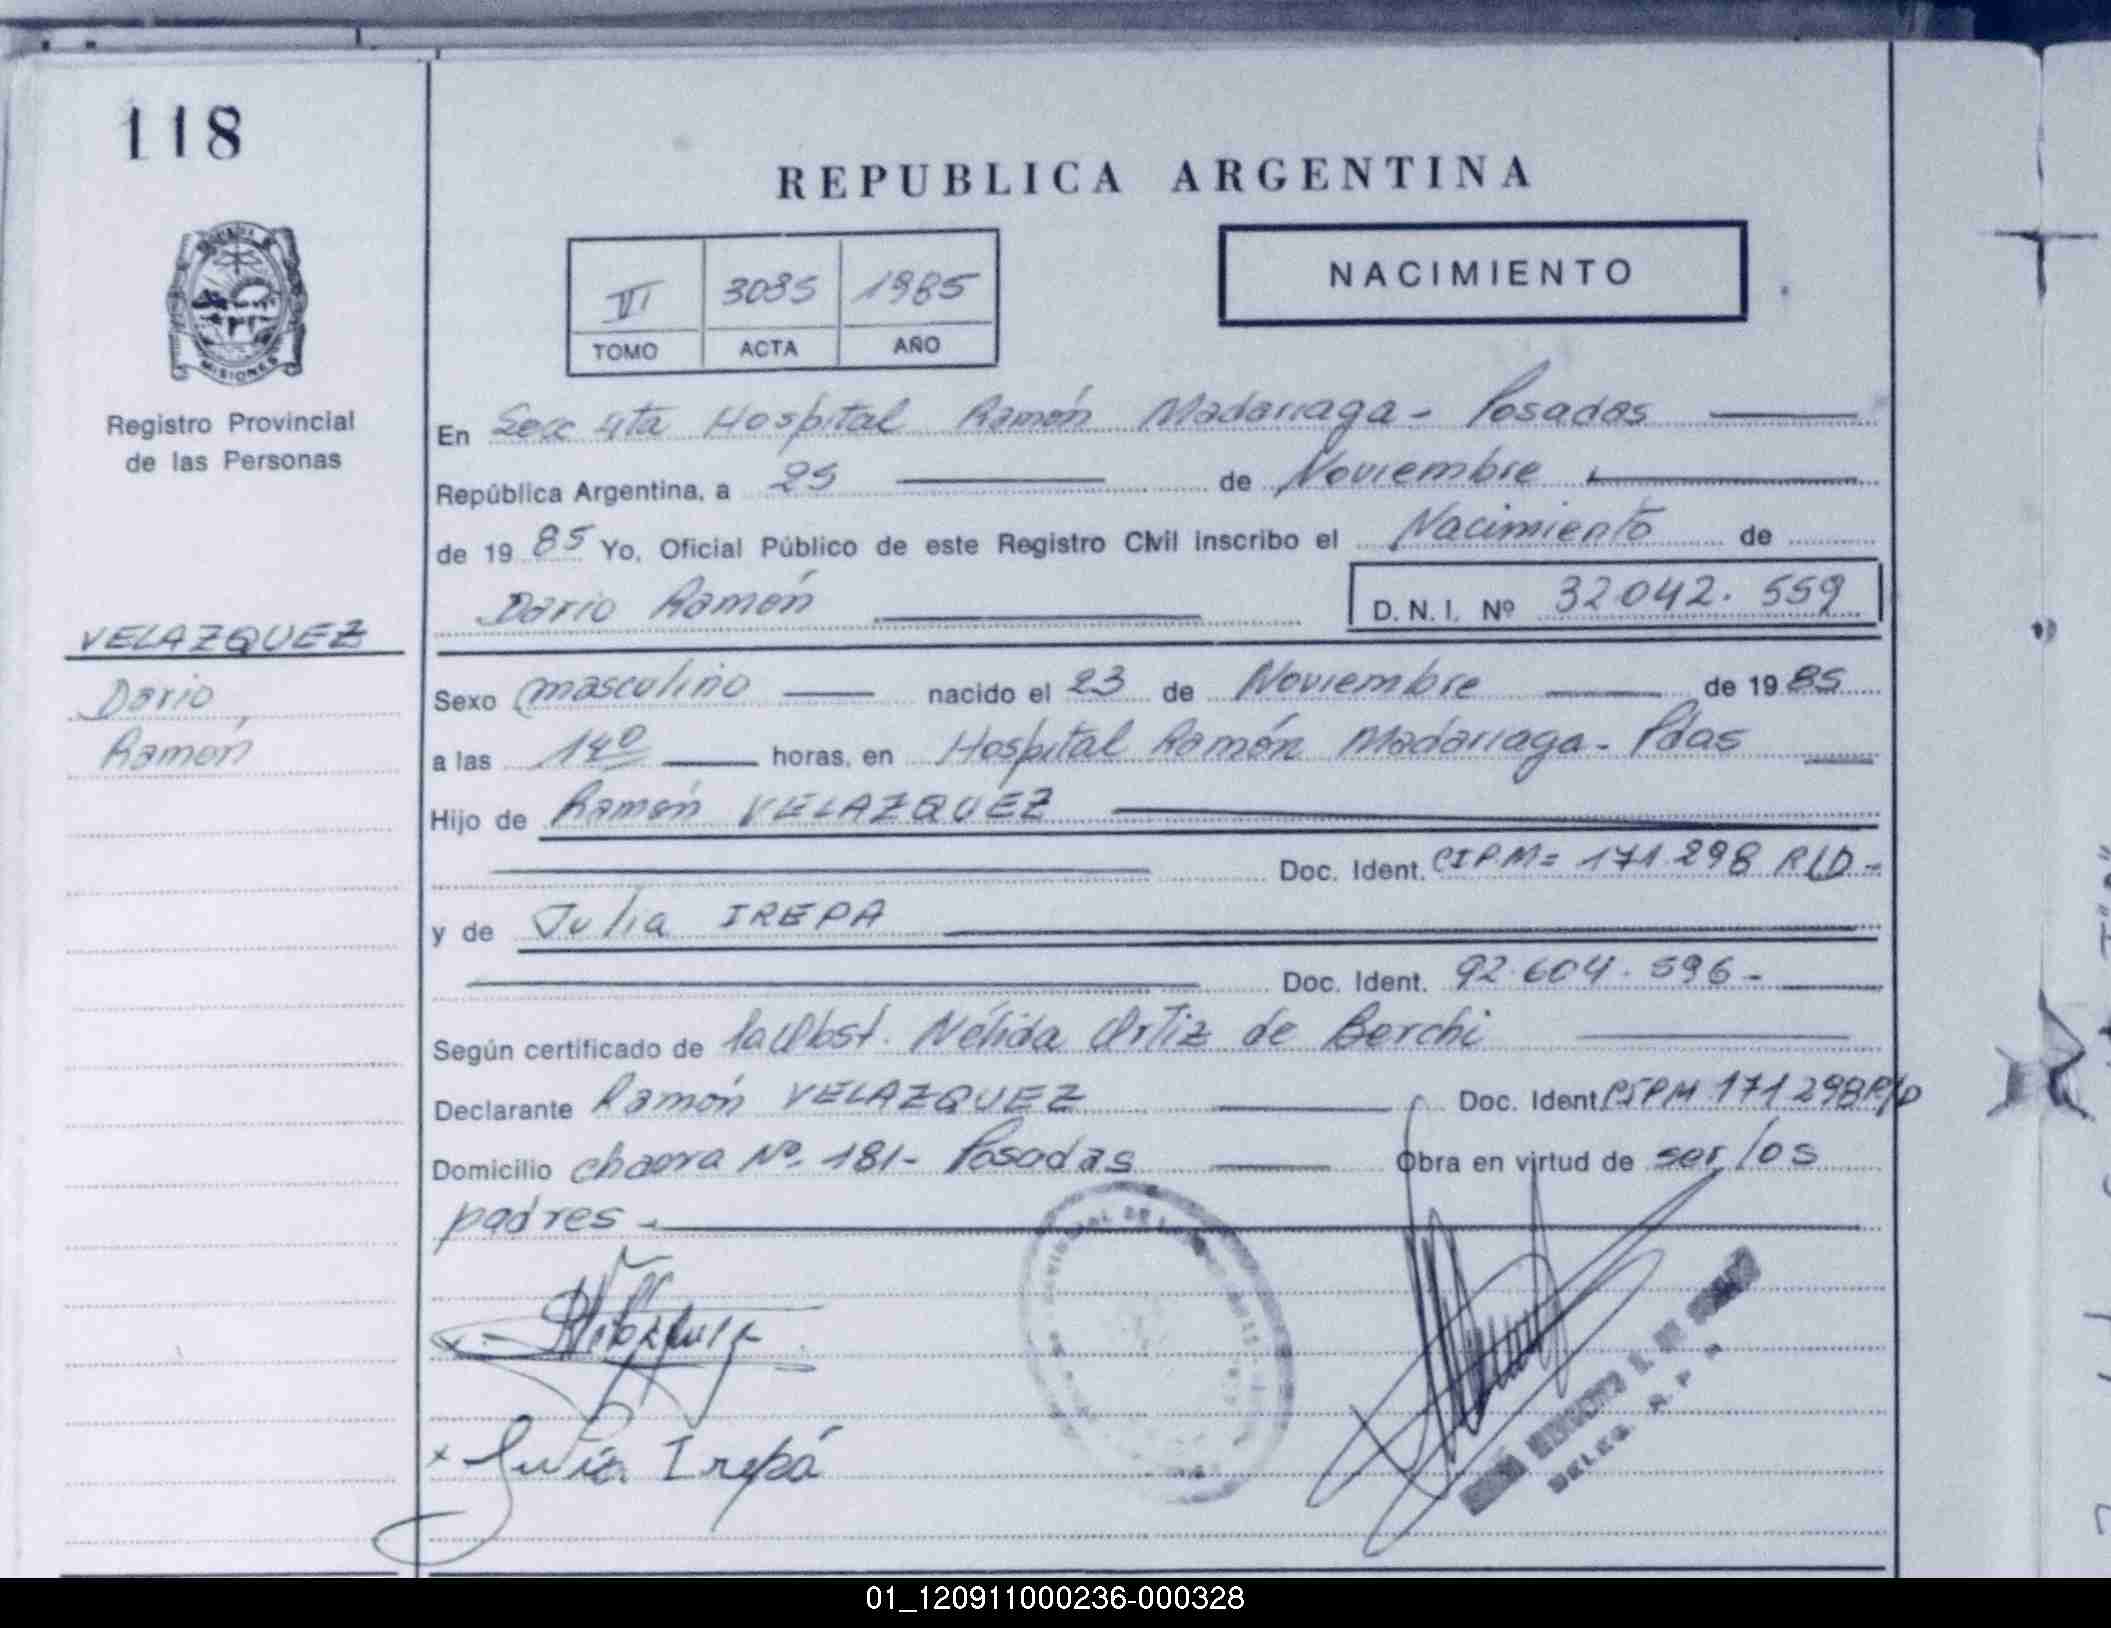 118
REPUBLICA ARGENTINA
MISIONES
Registro Provincial
de las Personas
VI 3085 1985
TOMO ACTA AÑO
NACIMIENTO
En Secc 4ta Hospital Ramón Madariaga - Posadas
República Argentina, a 25 de Noviembre
de 1985 Yo, Oficial Público de este Registro Civil inscribo el Nacimiento de
Dario Ramón D. N. I. Nº 32042.559
VELAZQUEZ
Dario
Ramón
Sexo masculino nacido el 23 de Noviembre de 1985
a las horas, en Hospital Ramón Madariaga - Pdas
Hijo de Ramón VELAZQUEZ
Doc. Ident. CIPM= 171.298 R/D -
y de Julia IREPA
Doc. Ident. 92.604.596 -
Según certificado de la Obst. Nélida Ortiz de Berchi
Declarante Ramón VELAZQUEZ Doc. Ident CIPM 171298R/D
Domicilio chacra Nº 181 - Posadas Obra en virtud de ser los
padres -
x Velazquez
x Julia Irepá
DELEG. R. P.
01_120911000236-000328